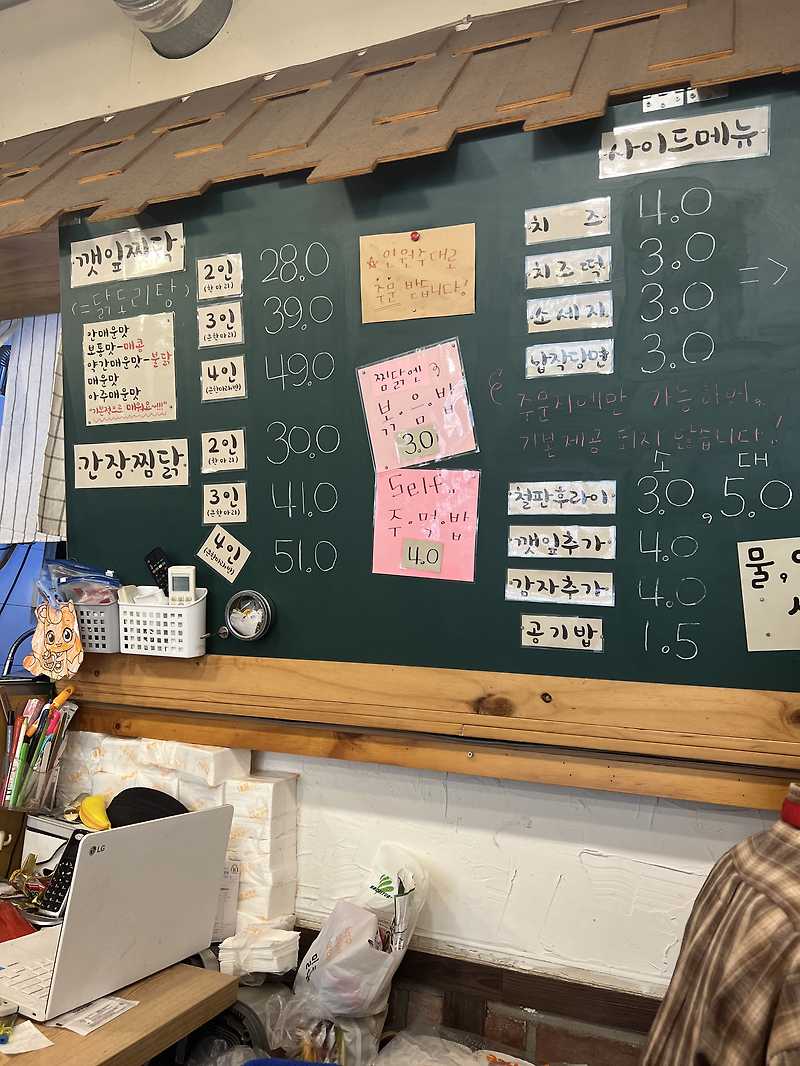 사이드메뉴
깻잎찜닭
(=닭도리탕)
안매운맛
보통맛-매콤
약간매운맛-불닭
매운맛
아주매운맛
"기본적으로 매워요~!!!"
2인 (한마리) 28.0
3인 (큰한마리) 39.0
4인 (큰한마리반) 49.0
간장찜닭
2인 (한마리) 30.0
3인 (큰한마리) 41.0
4인 (큰한마리반) 51.0
☆인원수대로
주문 받습니다!
찜닭엔
볶음밥
3.0
도리사..
주먹밥
4.0
치즈 4.0
치즈떡 3.0 =>
소세지 3.0
납작당면 3.0
주문시에만 가능하며,
기본제공 되지 않습니다!
소 대
철판후라이 3.0, 5.0
깻잎추가 4.0
감자추가 4.0
공기밥 1.5
물,
LG